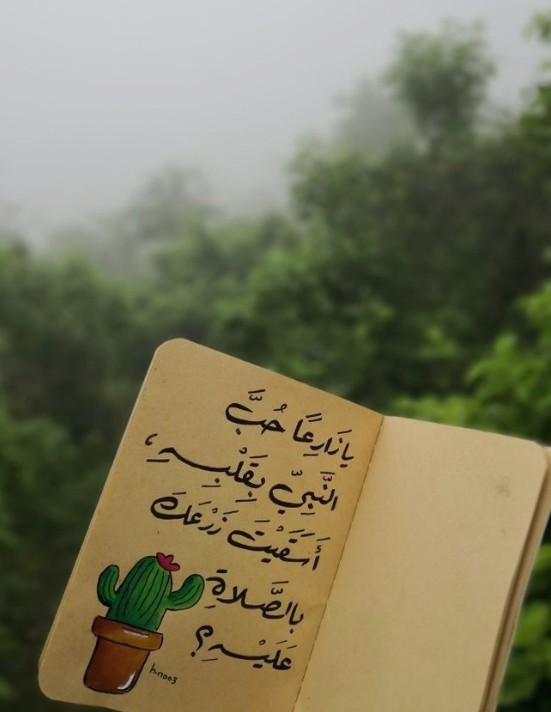 يَا زَارِعًا حُبَّ
النَّبِيِّ بِقَلْبِهِ،
أَسَقَيْتَ زَرْعَكَ
بالصَّلاةِ
عَلَيْهِ؟
h.noo3